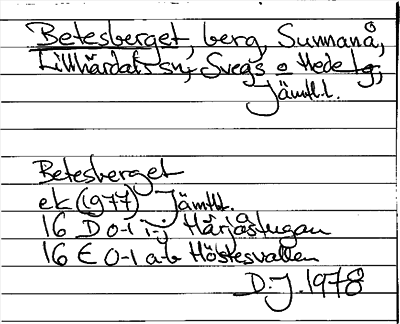 Betesberget, berg, Sunnanå,
Lillhärdals sn, Svegs o Hede tg,
Jämtl.l.
Betesberget
ek (1977) Jämtl.
16 D 0-1 i-j Härjåstugan
16 E 0-1 a-b Höstesvallen
D.J. 1978